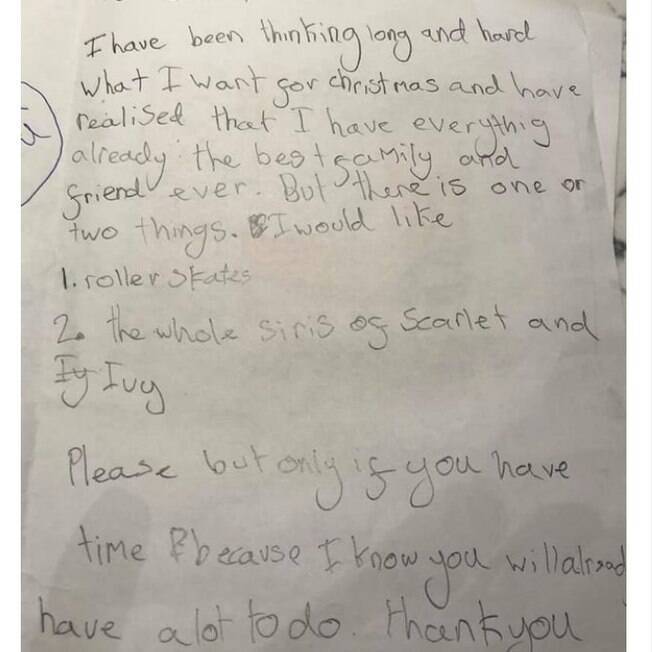 I have been thinking long and hard
what I want for christmas and have
realised that I have everythig
already the best family and
friend ever. But there is one or
two things. I would like
1. roller skates
2. the whole siris of Scarlet and
Iy Ivy
Please but only if you have
time because I know you will alread
have a lot to do. thank you